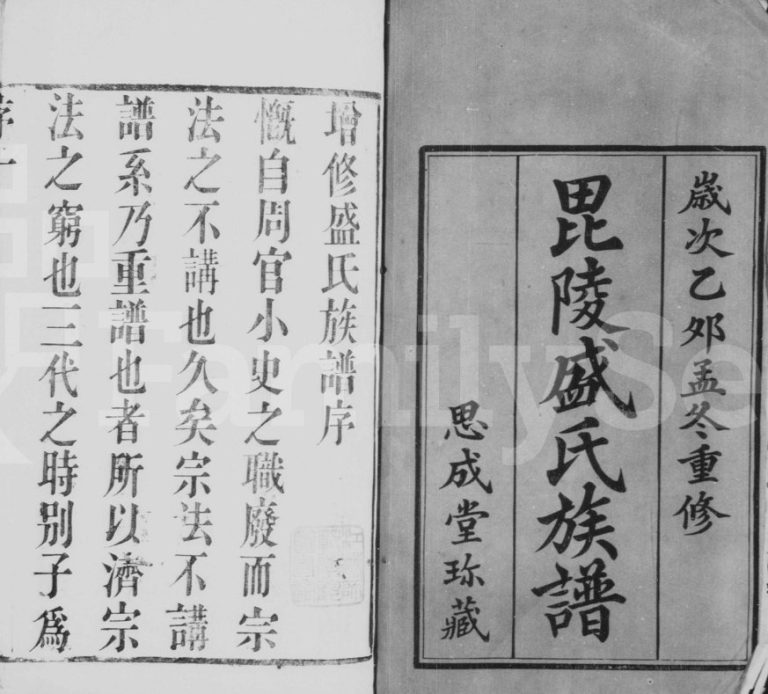 歲次乙夘孟冬重修
毘陵盛氏族譜
思成堂珍藏
增修盛氏族譜序
慨自周官小史之職廢而宗
法之不講也久矣宗法不講
譜系乃重譜也者所以濟宗
法之窮也三代之時别子爲
FamilySe